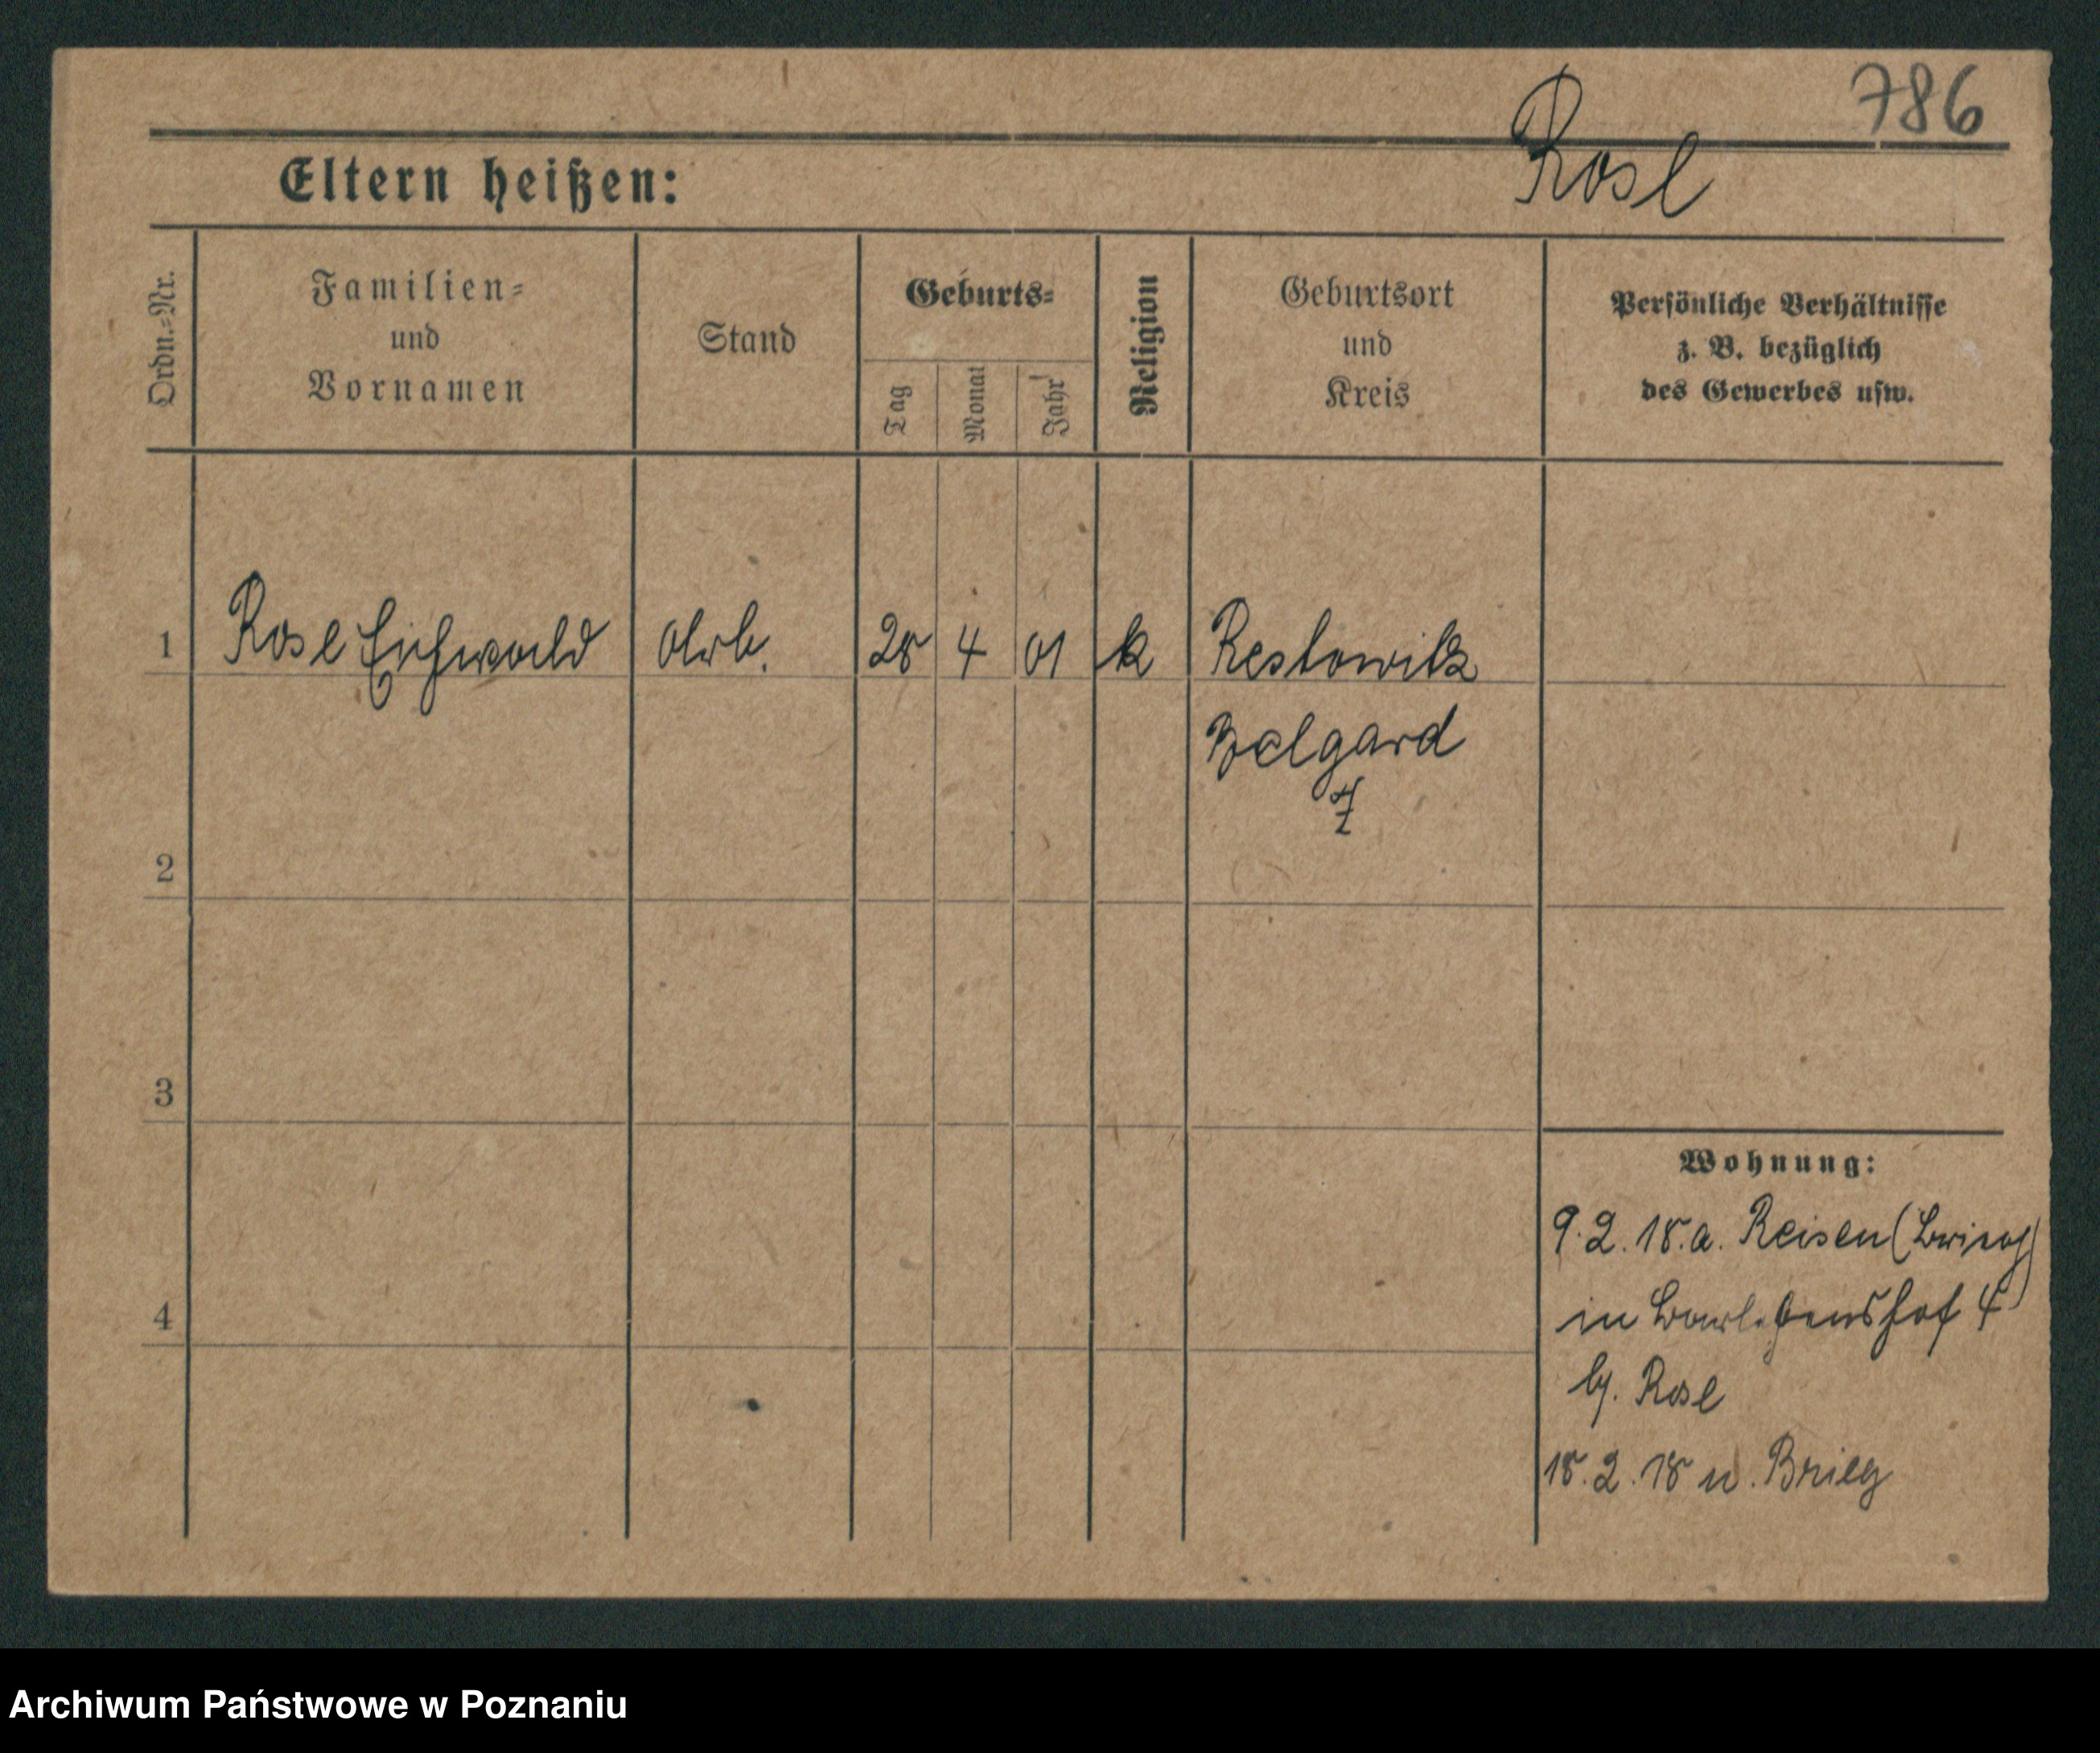 786
Rosl
Eltern heißen:
Ordn.-Nr.
Familien-
und
Vornamen
Stand
Geburts-
Tag
Monat
Jahr
Religion
Geburtsort
und
Kreis
Persönliche Verhältnisse
z. B. bezüglich
des Gewerbes usw.
1 Rosl 28 4 01 k
Belgard
2
3
4
Wohnung:
9.2.18. a. Reisen (Brieg)
in
b. Rosl
18.2.18 n. Brieg
Archiwum Państwowe w Poznaniu